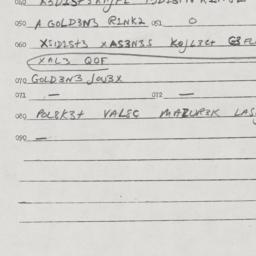 050 A GOLD3N3 R2NK2 051 O
060 XSID1S+3 XAS3N3S KOJL3C+ G3FL
XAL3 QOF
070 GOLD3N3 JOU3X
071 — 072 —
080 POL8K3+ VALSC MAZUR3K LAS
090 —